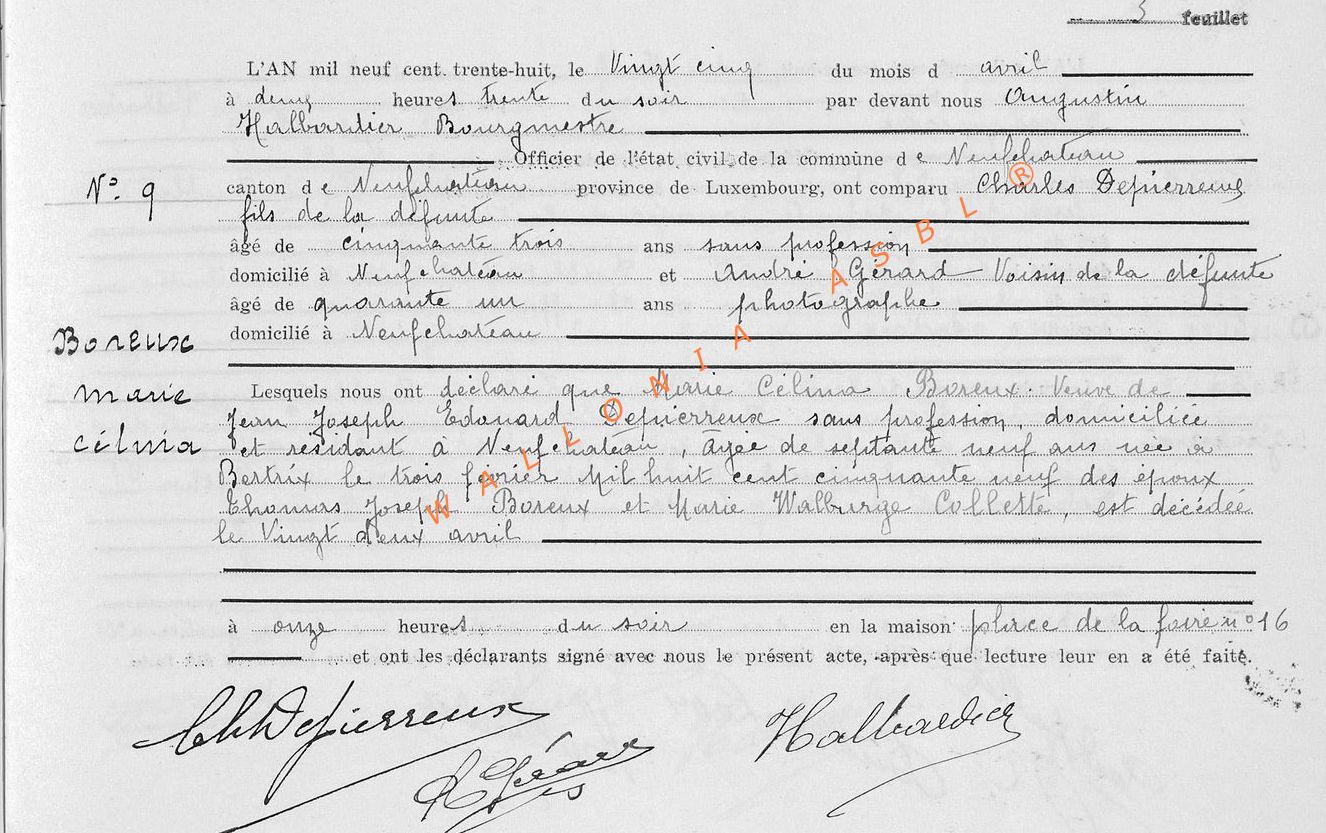 3 feuillet
L'AN mil neuf cent trente-huit, le Vingt cinq du mois d avril
à deux heures trente du soir par devant nous Augustin
Halbardier Bourgmestre
Officier de l'état civil de la commune de Neufchateau
N° 9
canton de Neufchateau province de Luxembourg, ont comparu Charles Depierreux
fils de la défunte
âgé de cinquante trois ans sans profession
domicilié à Neufchateau et André Gérard Voisin de la défunte
âgé de quarante un ans photographe
domicilié à Neufchateau
Boreux
marie
célina
Lesquels nous ont déclaré que Marie Célina Boreux. Veuve de
Jean Joseph Edouard Depierreux sans profession, domiciliée
et résidant à Neufchateau, âgée de septante neuf ans née à
Bertrix le trois février Mil huit cent cinquante neuf des époux
Thomas Joseph Boreux et Marie Walburge Collette, est décédée
le Vingt deux avril
à onze heures du soir en la maison place de la foire n° 16
et ont les déclarants signé avec nous le présent acte, après que lecture leur en a été faite.
Ch Depierreux
Halbardier
A Gérard
WALLONIA ASBL ®